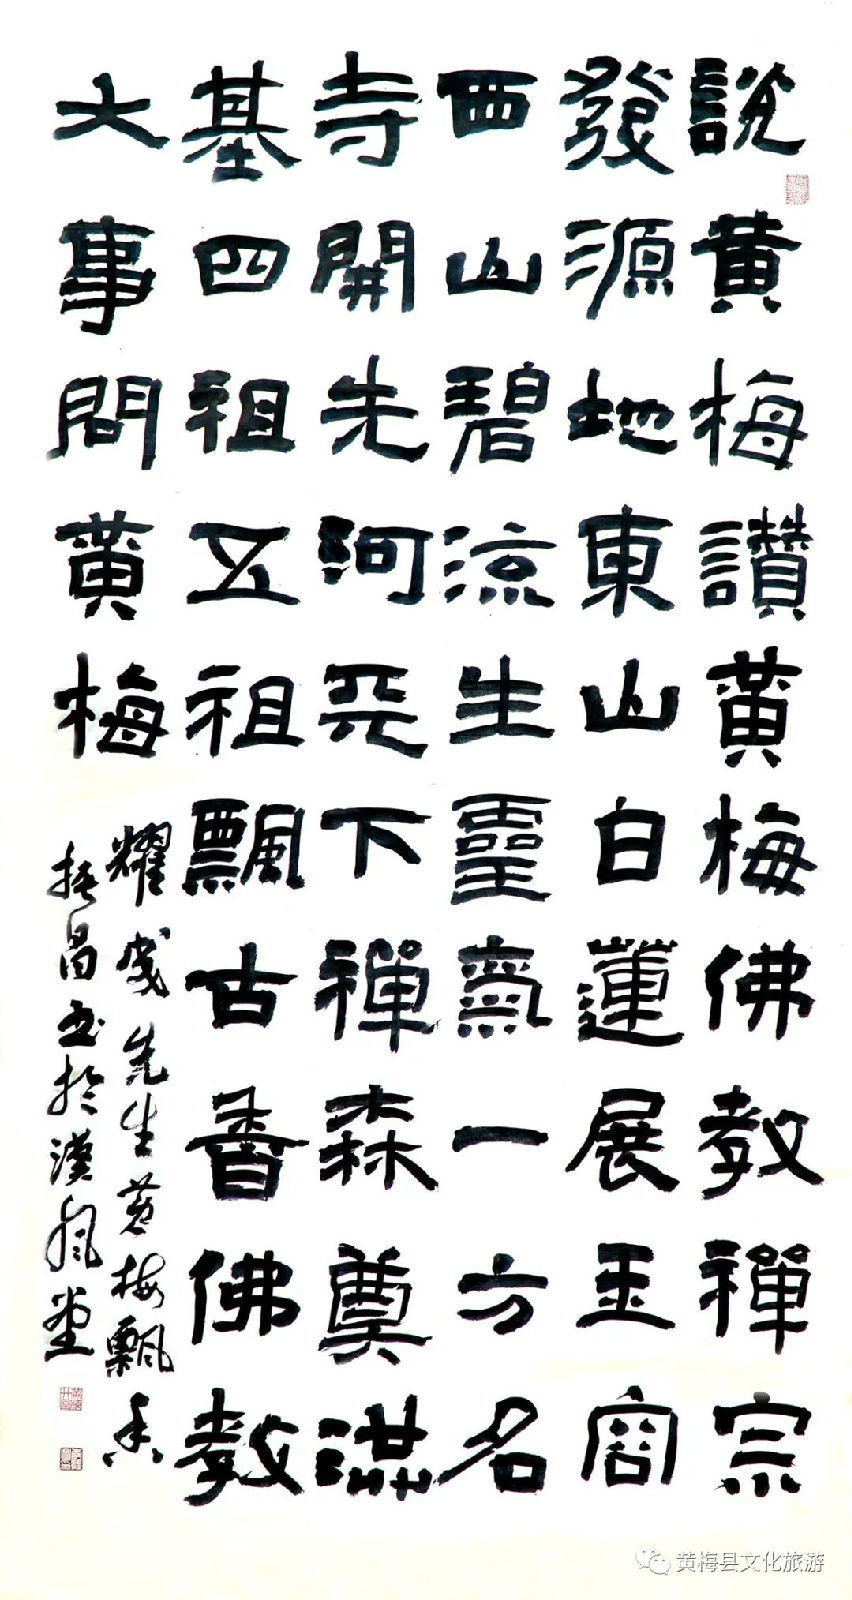 說黄梅讚黄梅佛教禪宗
發源地東山白蓮展玉容
西山碧涼生靈氣一方名
寺開先河天下禪森奠洪
基四祖五祖飄古香佛教
大事問黄梅
耀成先生黄梅飄香
振昌书於漢風堂
黄梅县文化旅游